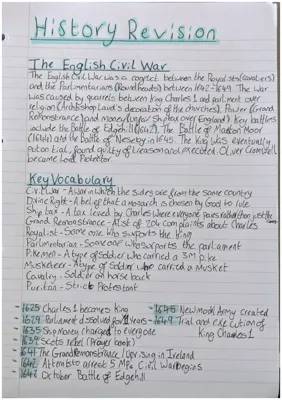 History Revision
The English Civil War
The English Civil War was a conflict between the Royalists (cavaliers)
and the Parlimentarians (Roundheads) between 1642-1649. The War
was caused by quarrels between King Charles 1 and parliment over
religion (Archbishop Laud's decoration of the churches), Power (Grand
Remonstrance) and money (unfair ship tax over England). Key battles
include the Battle of Edgehill (1642), The Battle of Marston Moor
(1644) and the Battle of Naseby in 1645. The King was eventually
put on trial, found guilty of treason and executed. Oliver Cromwell
became Lord Protector.
Key Vocabulary
Civil War - A war in which the sides are from the same country
Divine Right - A belief that a monarch is chosen by God to rule
Ship tax - A tax levied by Charles where everyone pays rather than just the
Grand Remonstrance - A list of 204 complaints about Charles
Royalist - Someone who supports the King
Parlimentarian - Someone who supports the parliament
Pikemen - A type of soldier who carried a 3m pike
Musketeer - A type of soldier who carried a Musket
Cavalry - Soldier on horse back
Puritan - Strict Protestant
- 1625 Charles 1 becomes King
- 1629 Parliament dissolved for 11 years
- 1635 Ship Money charged to everyone
- 1639 Scots rebel (Prayer book)
- 1641 The Grand Remonstrance / Uprising in Ireland
- 1642 Attempt to arrest 5 MPs. Civil War begins
- 1642 October Battle of Edgehill
- 1645 New model Army created
- 1649 Trial and execution of
King Charles 1